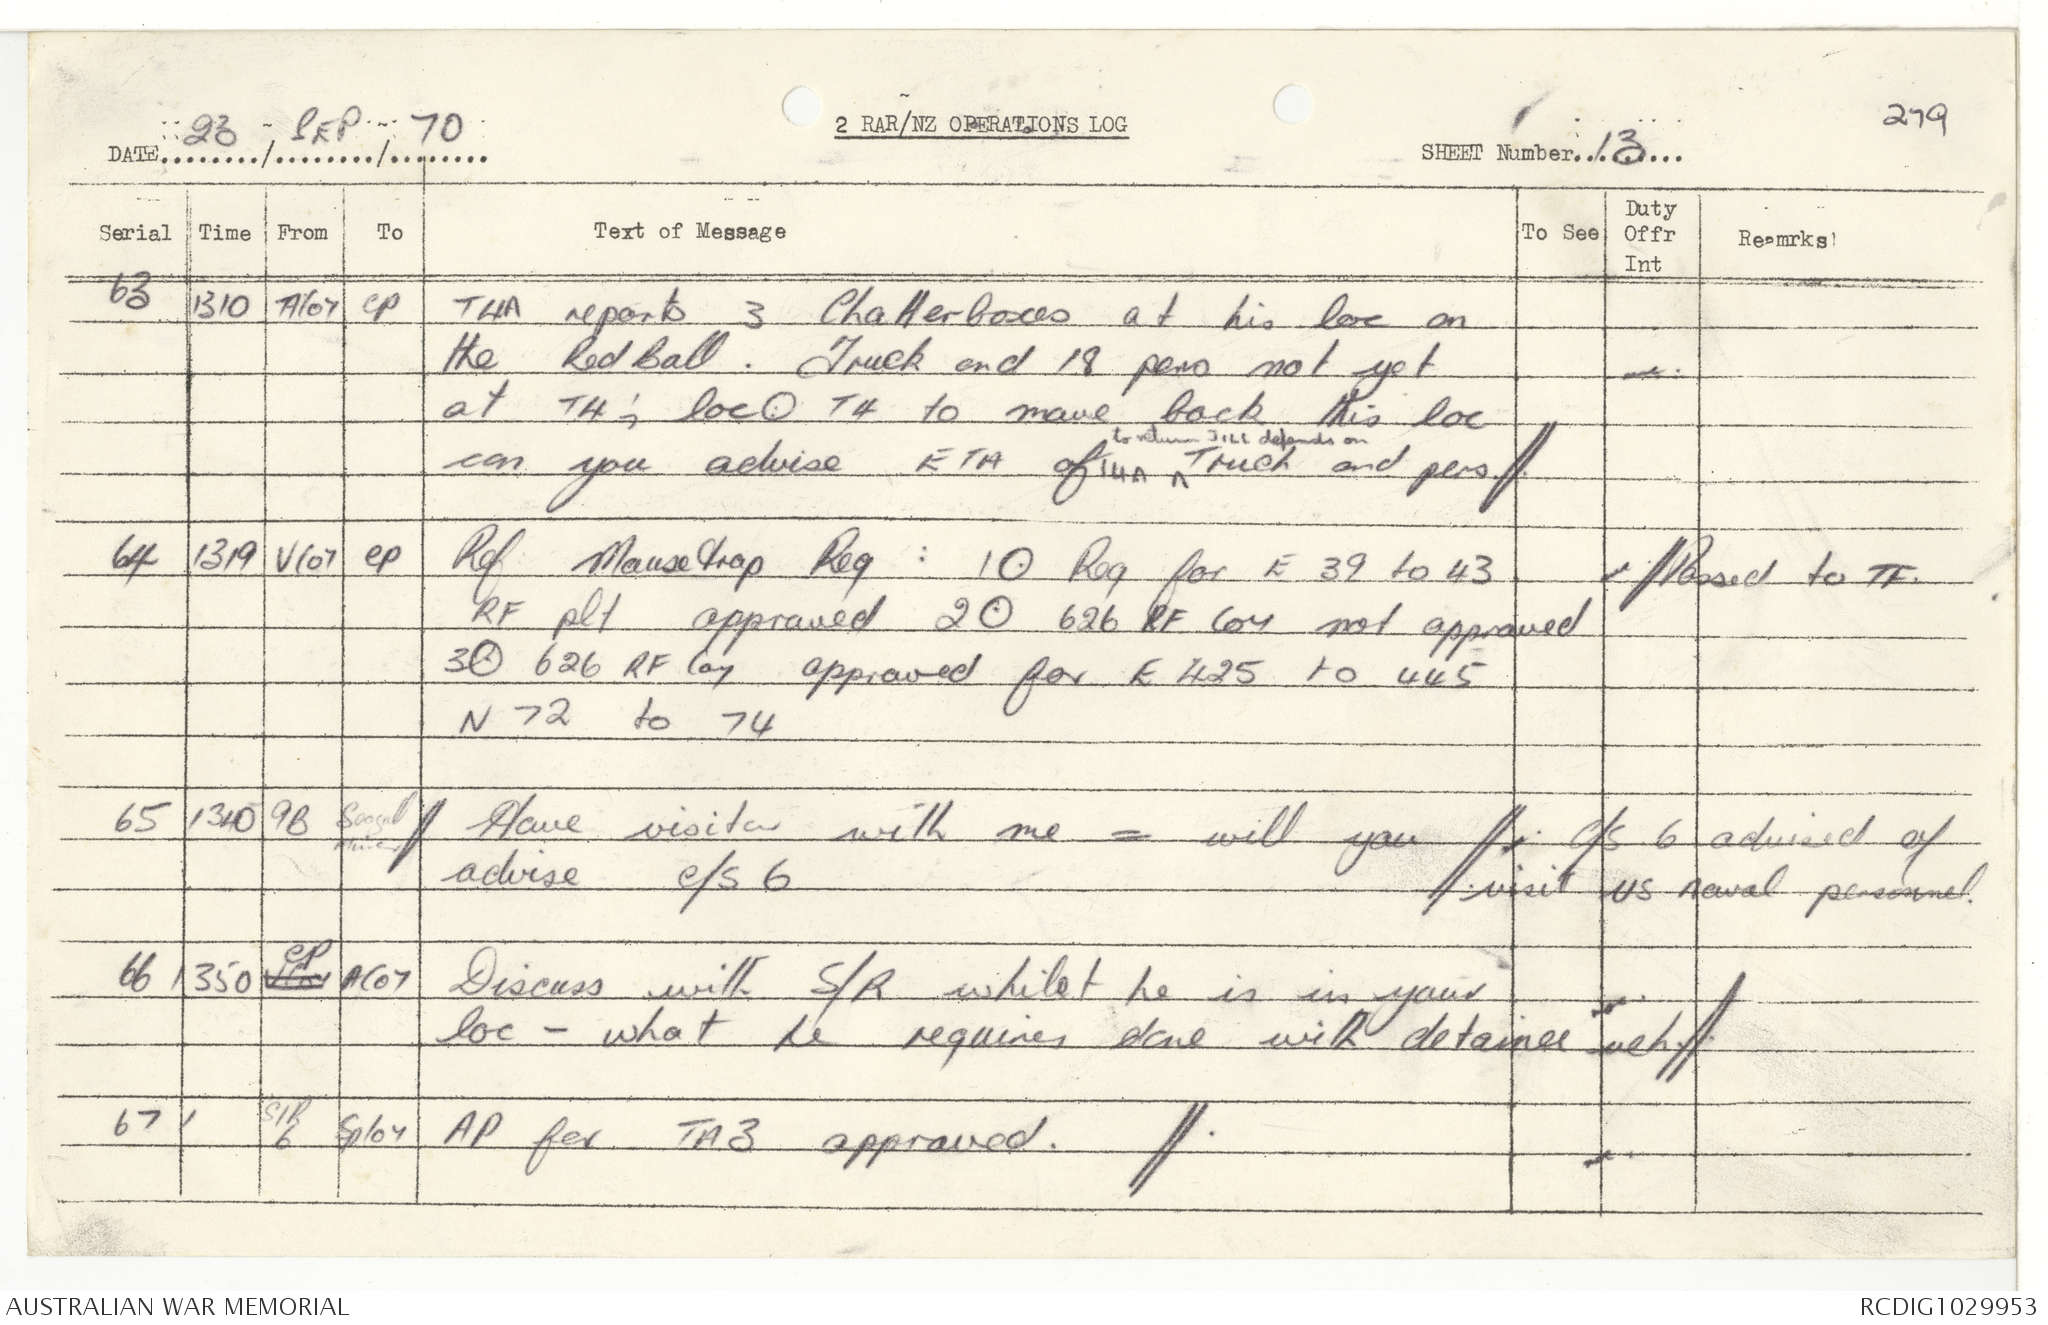 279
23 SEP 70
DATE......../......../........
2 RAR/NZ OPERATIONS LOG
SHEET Number..13....
Serial Time From To Text of Message To See Duty Offr Int Reamrks
63 1310 A Coy CP T4A reports 3 Chatterboxes at his loc on
the Red Ball. Truck and 18 pers not yet
at T4's loc T4 to move back this loc
to return JILL depends on
can you advise ETA of T4A Truck and pers //
64 1319 V Coy CP Ref Mousetrap Req: 1 Req for E 39 to 43 // Passed to TF.
RF plt approved 2 626 RF Coy not approved
3 626 RF Coy approved for E 425 to 445
N 72 to 74
65 1340 9B Seagull // Have visitor with me = will you // c/s 6 advised of
advise c/s 6 visit US naval personnel.
CP
66 1350 A Coy Discuss with S/R whilst he is in your
loc - what he requires done with detainee veh //
67 S/R 6 Sp Coy AP for TA3 approved. //
AUSTRALIAN WAR MEMORIAL
RCDIG1029953